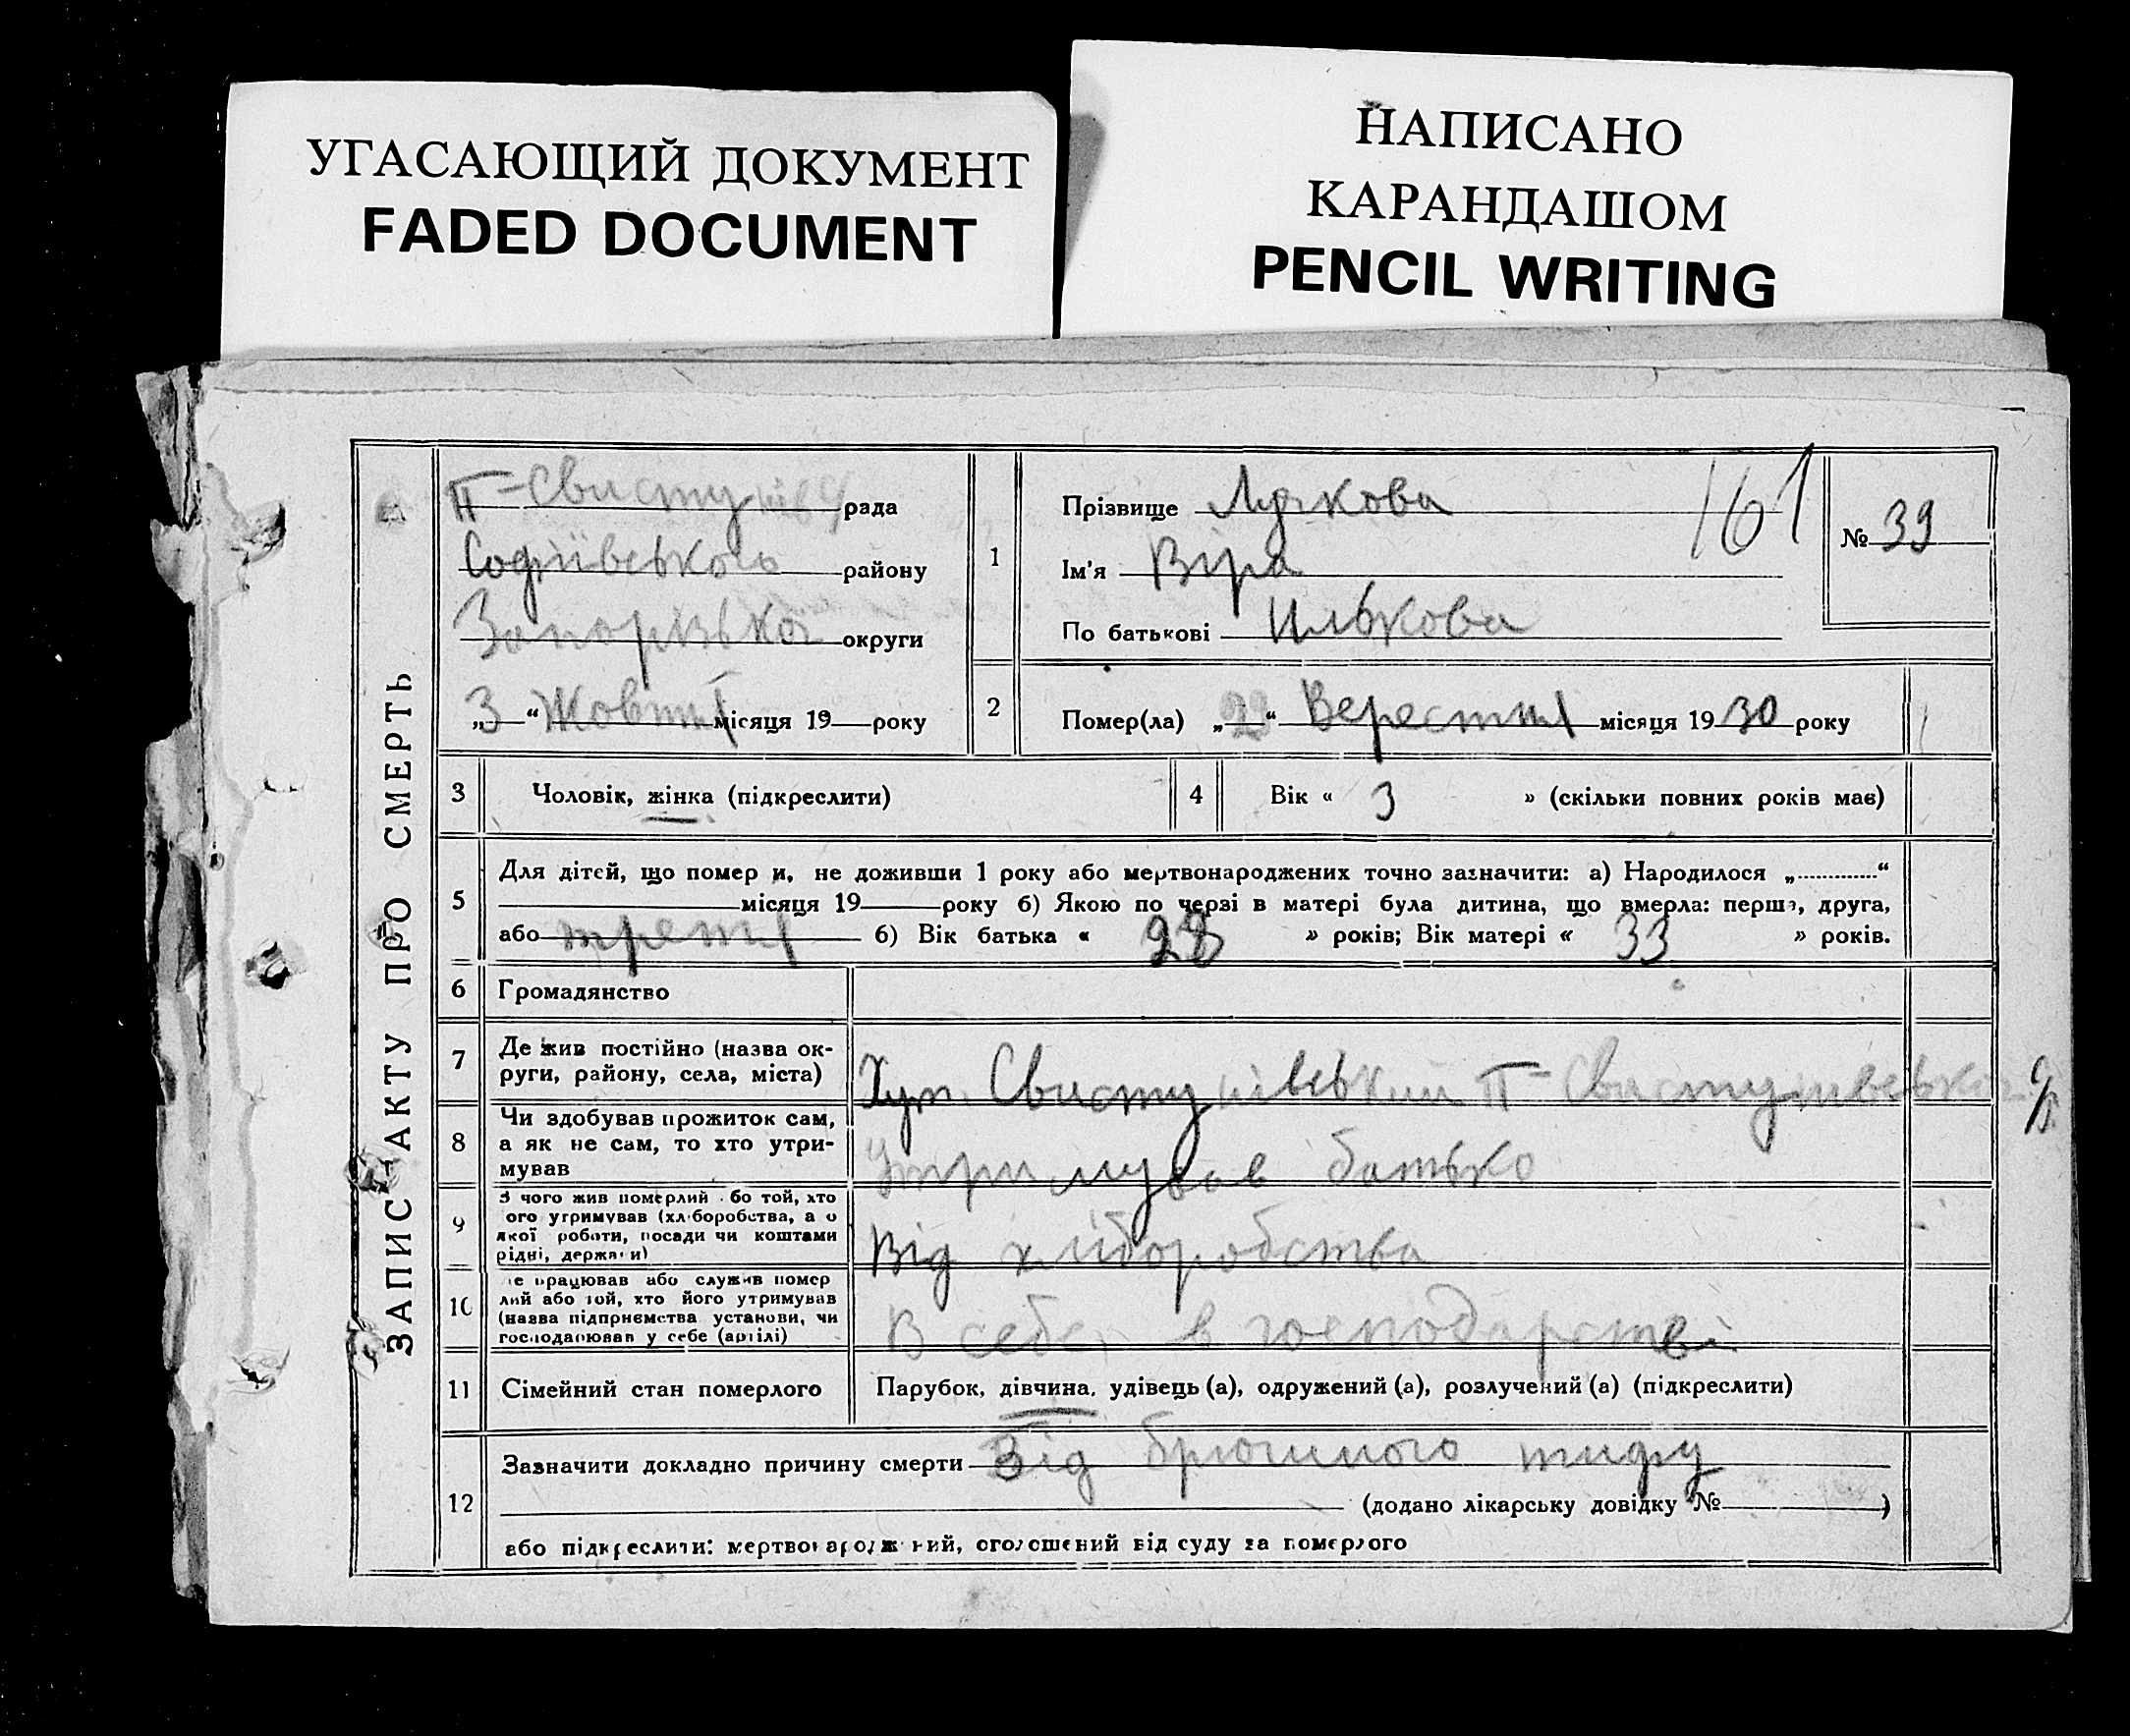 УГАСАЮЩИЙ ДОКУМЕНТ
FADED DOCUMENT
НАПИСАНО
КАРАНДАШОМ
PENCIL WRITING
ЗАПИС АКТУ ПРО СМЕРТЬ
П-Свистунів рада
Софіївського району
Запорізької округи
„3“ Жовтня місяця 19 року
1
Прізвище Лячкова
161
№ 39
Ім'я Віра
По батькові Илькова
2
Помер(ла) „ “ Верестня місяця 1930 року
3 Чоловік, жінка (підкреслити)
4 Вік « 3 » (скільки повних років має)
5 Для дітей, що помер и, не доживши 1 року або мертвонароджених точно зазначити: а) Народилося „.............“
місяця 19 року б) Якою по черзі в матері була дитина, що вмерла: перша, друга,
або третя б) Вік батька « 28 » років; Вік матері « 33 » років.
6 Громадянство
7 Де жив постійно (назва ок-
руги, району, села, міста)
Хут. Свистунівський П-Свистунівської с/р
8 Чи здобував прожиток сам,
а як не сам, то хто утри-
мував
Утримував батько
9 З чого жив померлий бо той, хто
ого утримував (хліборобства, а о
якої роботи, посади чи коштами
рідні, держави)
Від хліборобства
10 е працював або служив помер
лий або той, хто його утримував
(назва підприємства установи, чи
господарював у себе (артілі)
В себе в господарстві
11 Сімейний стан померлого
Парубок, дівчина, удівець (а), одружений (а), розлучений (а) (підкреслити)
12 Зазначити докладно причину смерти Від брюшного тифу
(додано лікарську довідку № )
або підкреслити: мертвонароджений, оголошений від суду за померлого